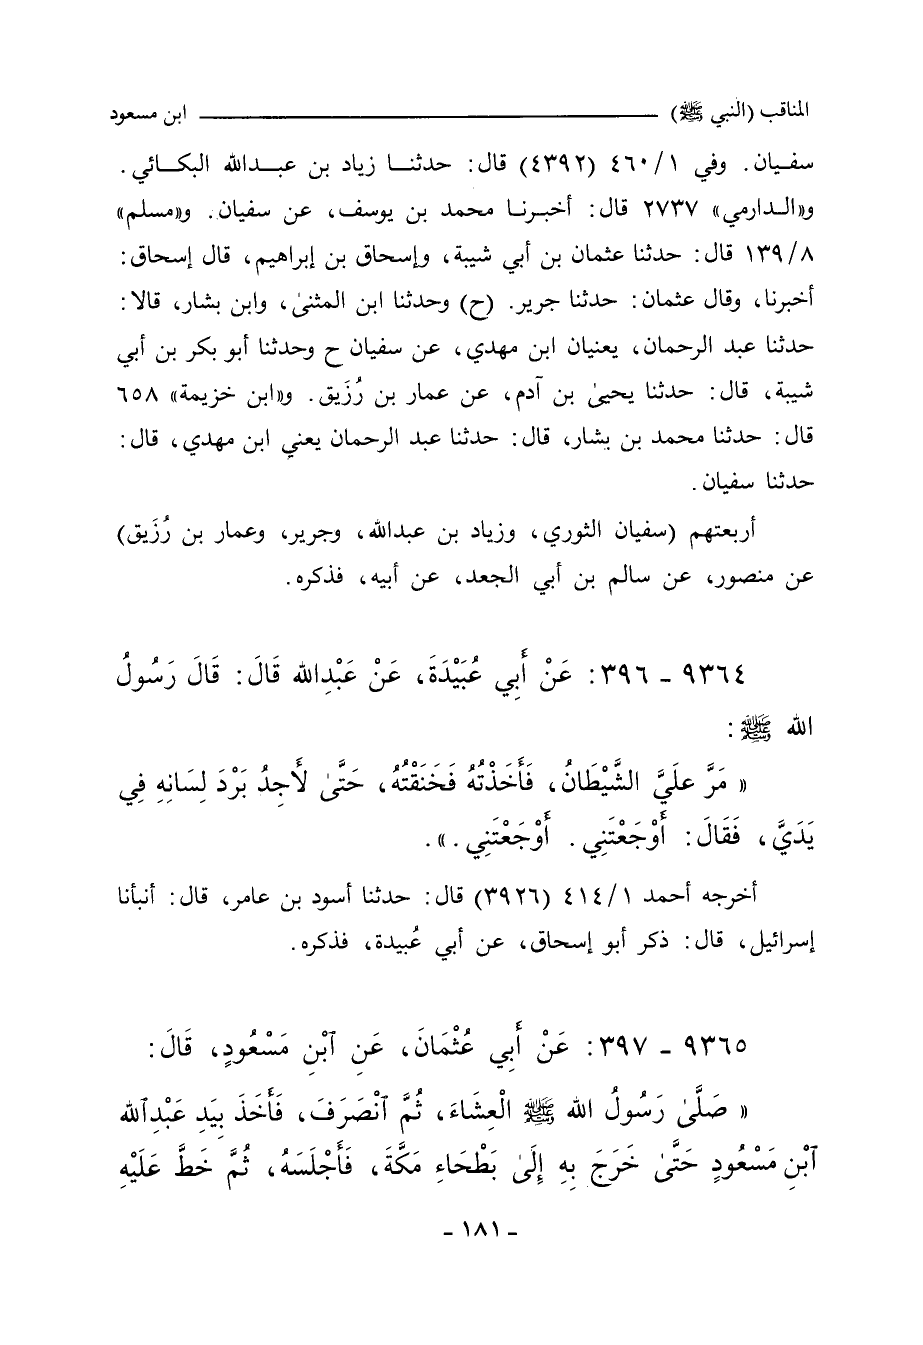 المناقب (النبي ﷺ) ابن مسعود
سفيان. وفي ٤٦٠/١ (٤٣٩٢) قال: حدثنا زياد بن عبدالله البكائي.
و«الدارمي» ٢٧٣٧ قال: أخبرنا محمد بن يوسف، عن سفيان. و«مسلم»
١٣٩/٨ قال: حدثنا عثمان بن أبي شيبة، وإسحاق بن إبراهيم، قال إسحاق:
أخبرنا، وقال عثمان: حدثنا جرير. (ح) وحدثنا ابن المثنىٰ، وابن بشار، قالا:
حدثنا عبد الرحمان، يعنيان ابن مهدي، عن سفيان ح وحدثنا أبو بكر بن أبي
شيبة، قال: حدثنا يحيىٰ بن آدم، عن عمار بن رُزَيق. و«ابن خزيمة» ٦٥٨
قال: حدثنا محمد بن بشار، قال: حدثنا عبد الرحمان يعني ابن مهدي، قال:
حدثنا سفيان.
أربعتهم (سفيان الثوري، وزياد بن عبدالله، وجرير، وعمار بن رُزَيق)
عن منصور، عن سالم بن أبي الجعد، عن أبيه، فذكره.
٩٣٦٤ - ٣٩٦: عَنْ أَبِي عُبَيْدَةَ، عَنْ عَبْدِالله قَالَ: قَالَ رَسُولُ
الله ﷺ:
« مَرَّ علَيَّ الشَّيْطَانُ، فَأَخَذْتُهُ فَخَنَقْتُهُ، حَتَّىٰ لأَجِدُ بَرْدَ لِسَانِهِ فِي
يَدَيَّ، فَقَالَ: أَوْجَعْتَنِي. أَوْجَعْتَنِي.».
أخرجه أحمد ٤١٤/١ (٣٩٢٦) قال: حدثنا أسود بن عامر، قال: أنبأنا
إسرائيل، قال: ذكر أبو إسحاق، عن أبي عُبيدة، فذكره.
٩٣٦٥ - ٣٩٧: عَنْ أَبِي عُثْمَانَ، عَنِ ٱبْنِ مَسْعُودٍ، قَالَ:
« صَلَّىٰ رَسُولُ الله ﷺ الْعِشَاءَ، ثُمَّ ٱنْصَرَفَ، فَأَخَذَ بِيَدِ عَبْدِٱلله
ٱبْنِ مَسْعُودٍ حَتَّىٰ خَرَجَ بِهِ إِلَىٰ بَطْحَاءِ مَكَّةَ، فَأَجْلَسَهُ، ثُمَّ خَطَّ عَلَيْهِ
- ١٨١ -